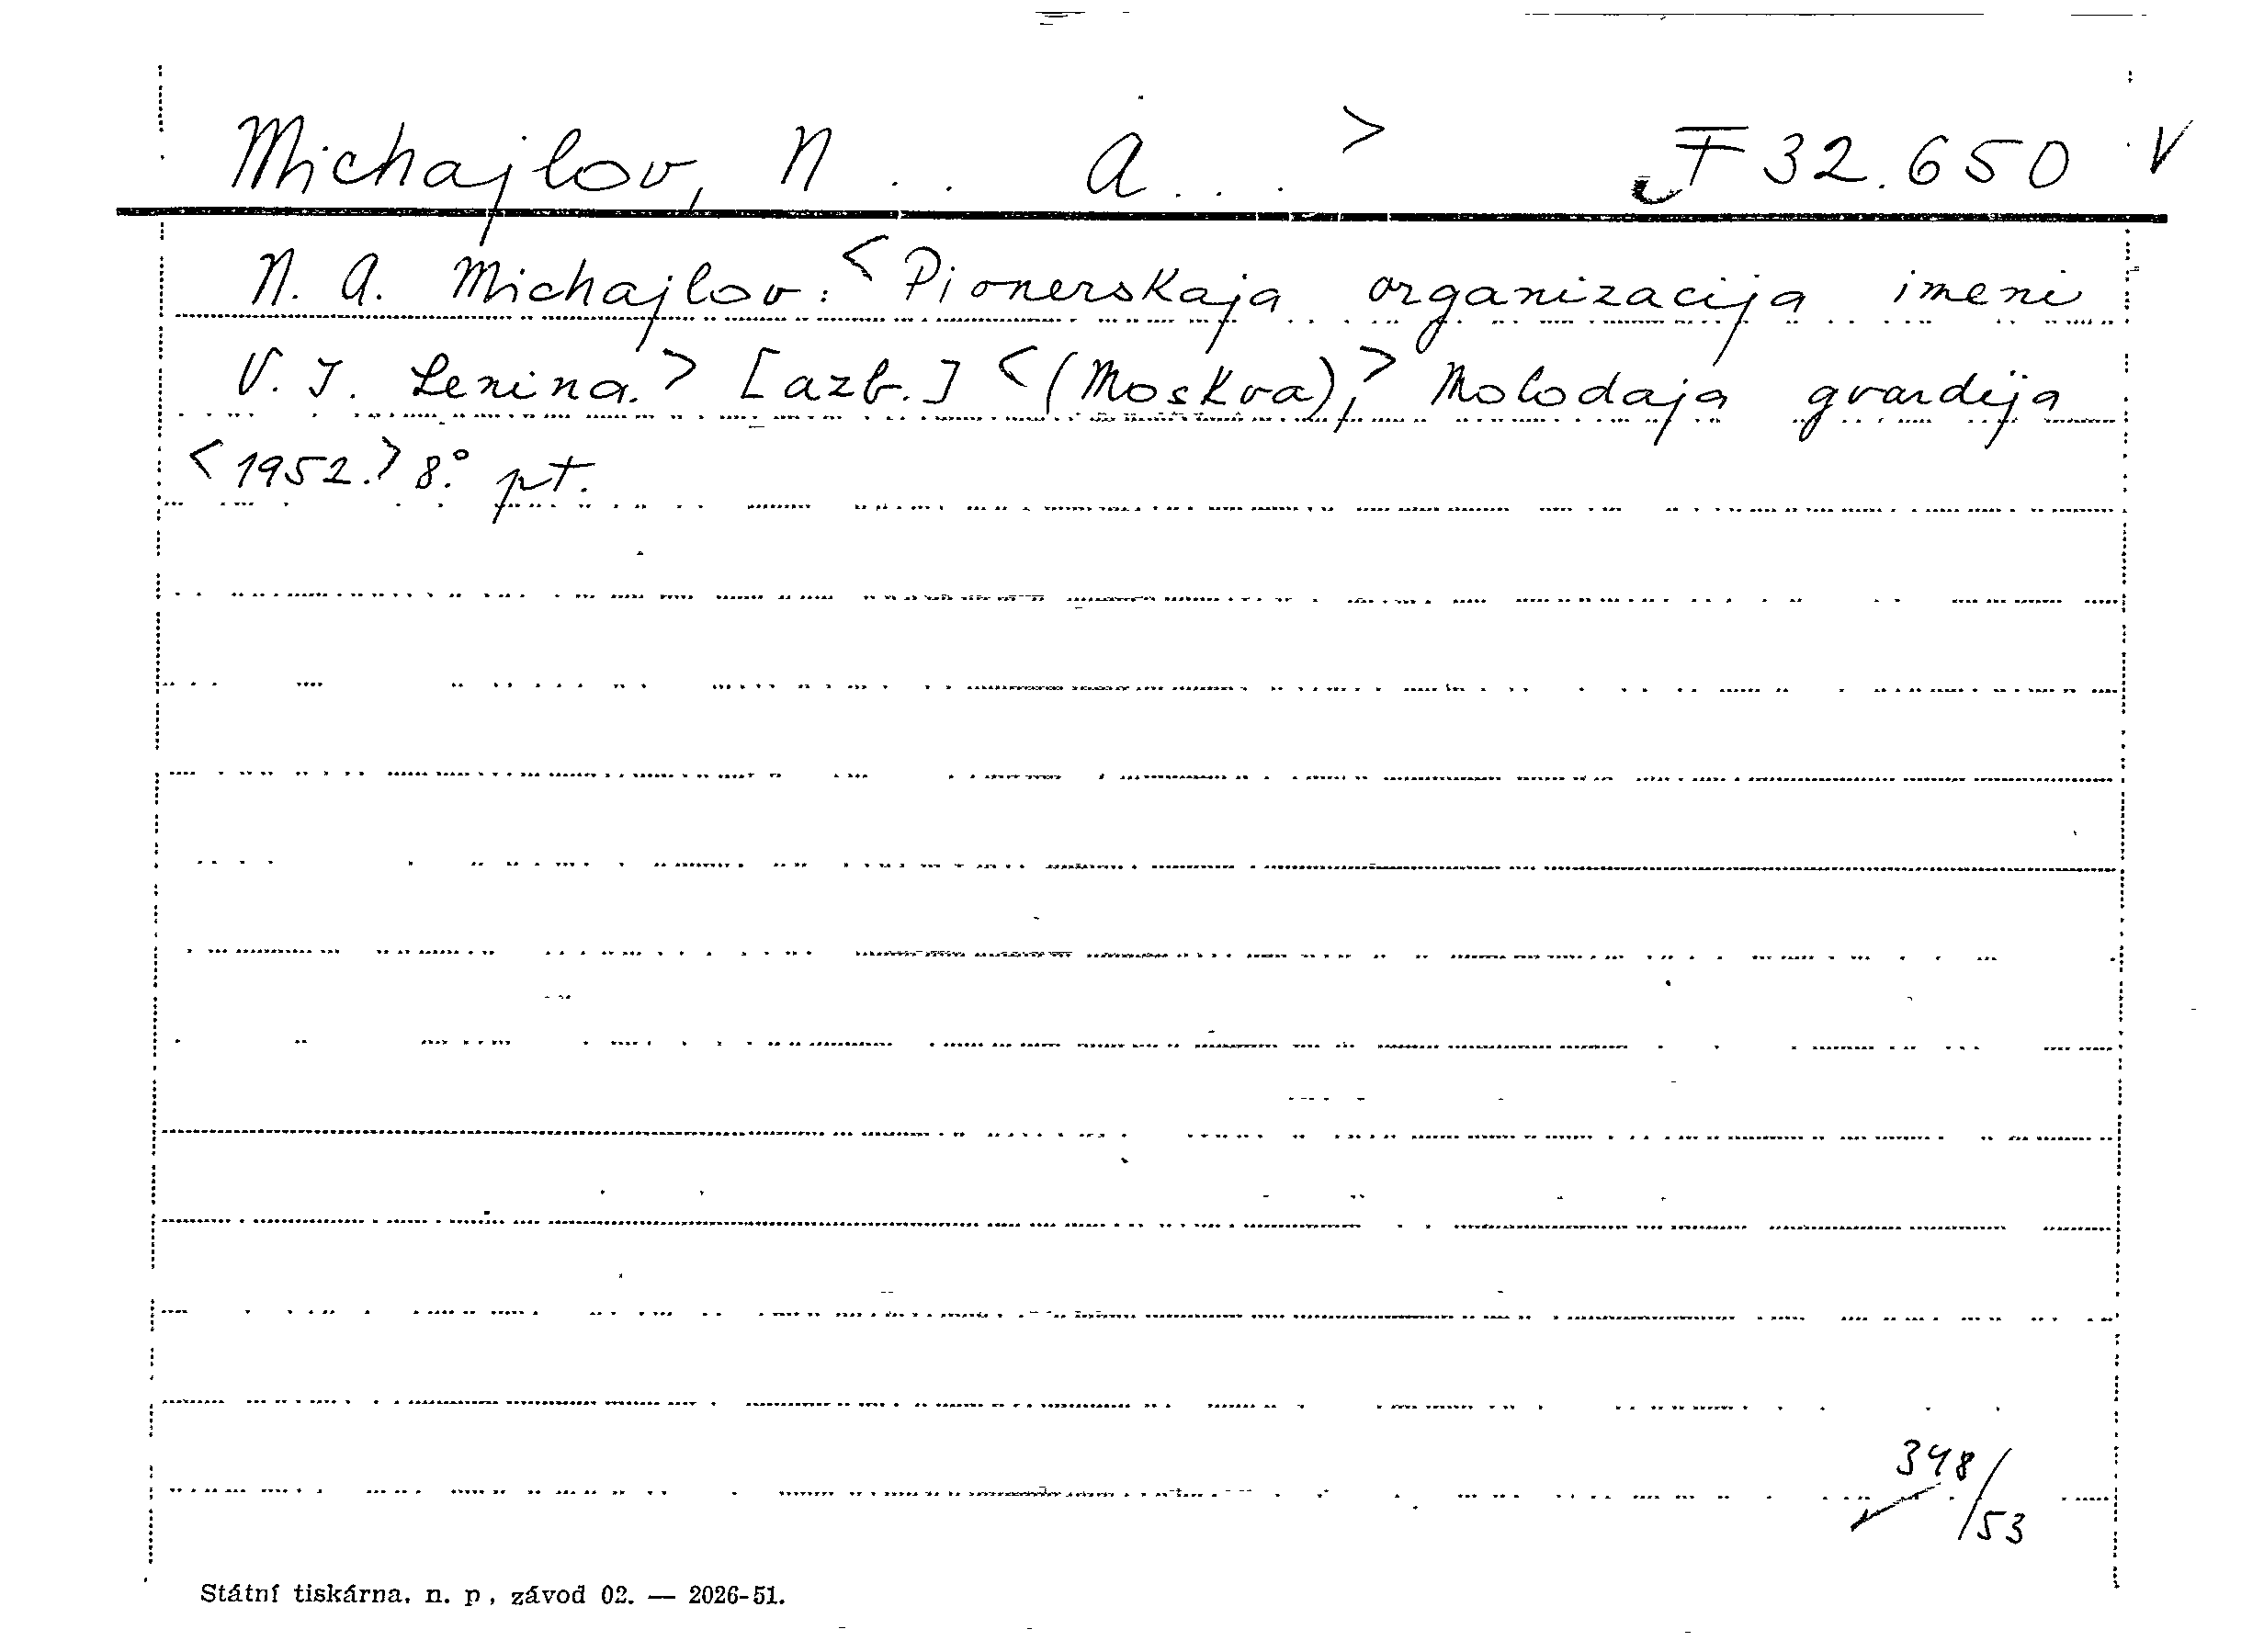 Michajlov, N . . A . . . > F 32.650 V
N. A. Michajlov: <Pionerskaja organizacija imeni
V. I. Lenina.> [azb.] <(Moskva),> Molodaja gvardija
<1952.> 8.° pt.
348/53
Státní tiskárna. n. p., závod 02. — 2026-51.